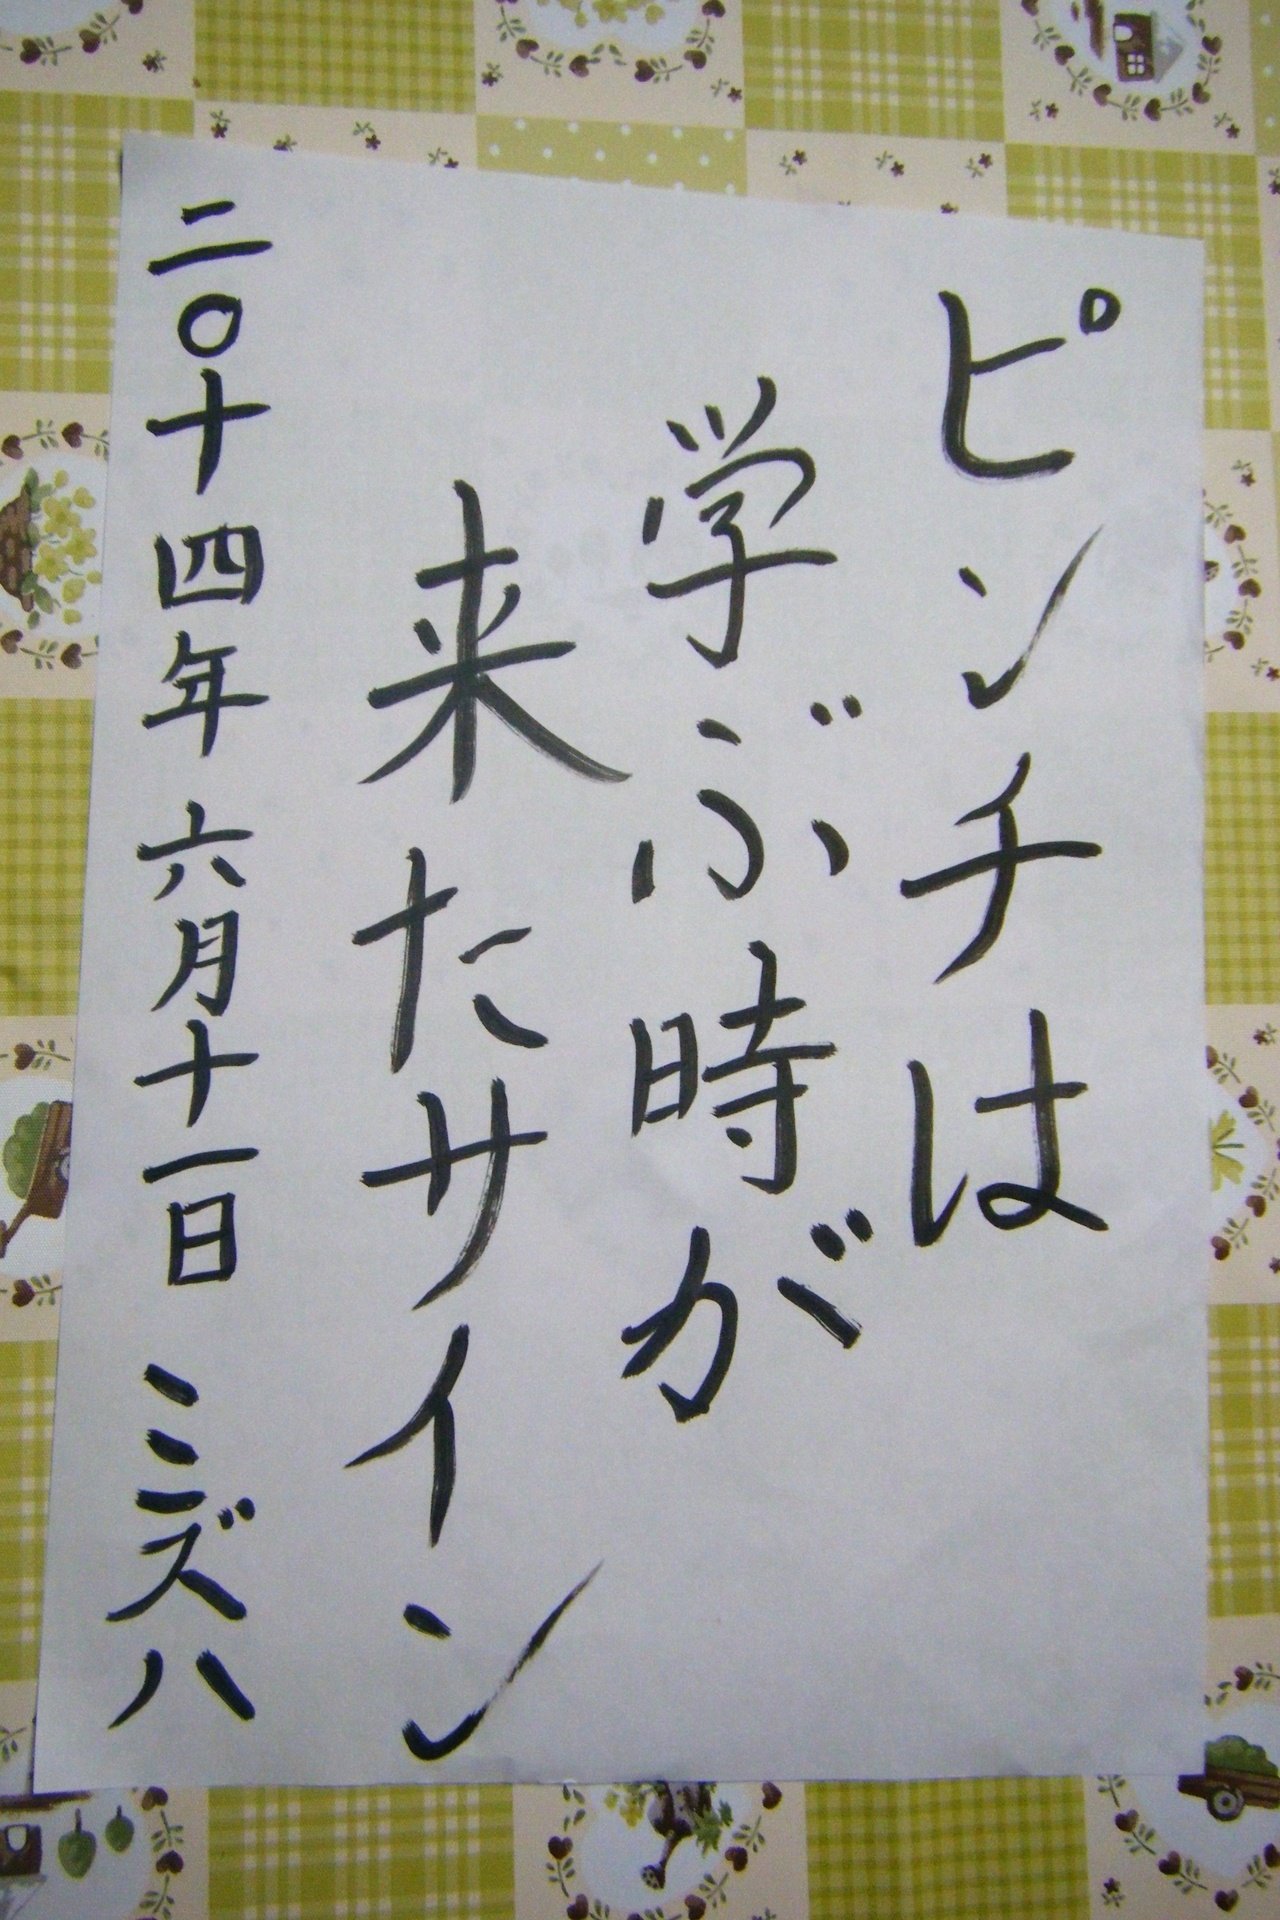 ピンチは
学ぶ時が
来たサイン
二〇十四年 六月十一日 ミズハ